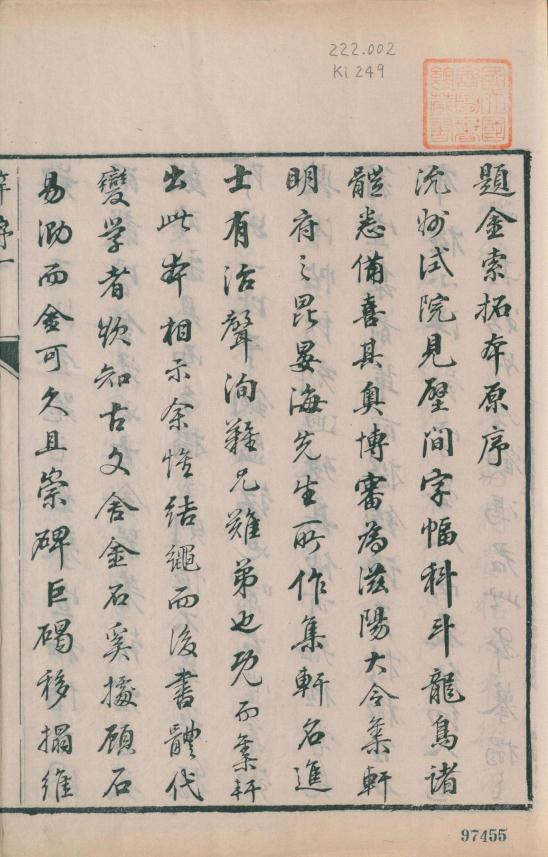 222.002
Ki 249
題金索拓夲原序
沇州試院見壁間字幅科斗龍鳥諸
體悉備喜其奧博審為滋陽大令集軒
明府之昆晏海先生所作集軒名進
士有治聲洵難兄難弟也既而集軒
出此夲相示余惟結繩而後書體代
變学者欲知古文舍金石奚據顧石
易泐而金可久且崇碑巨碣移搨維
序一
97455